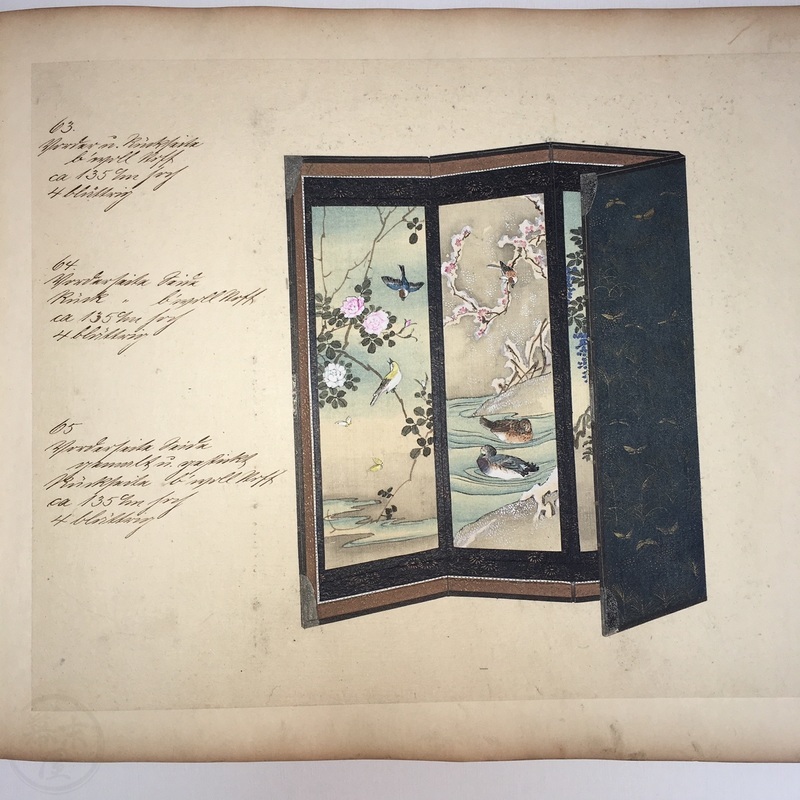 63.
Vorder u. Rückseite
b'woll Stoff
ca 135 cm hoch
4 blättrig
64.
Vorderseite Seide
Rück " b'woll Stoff
ca 135 cm hoch
4 blättrig
65
Vorderseite Seide
gemalt u. gestickt
Rückseite b'woll Stoff
ca 135 cm hoch
4 blättrig